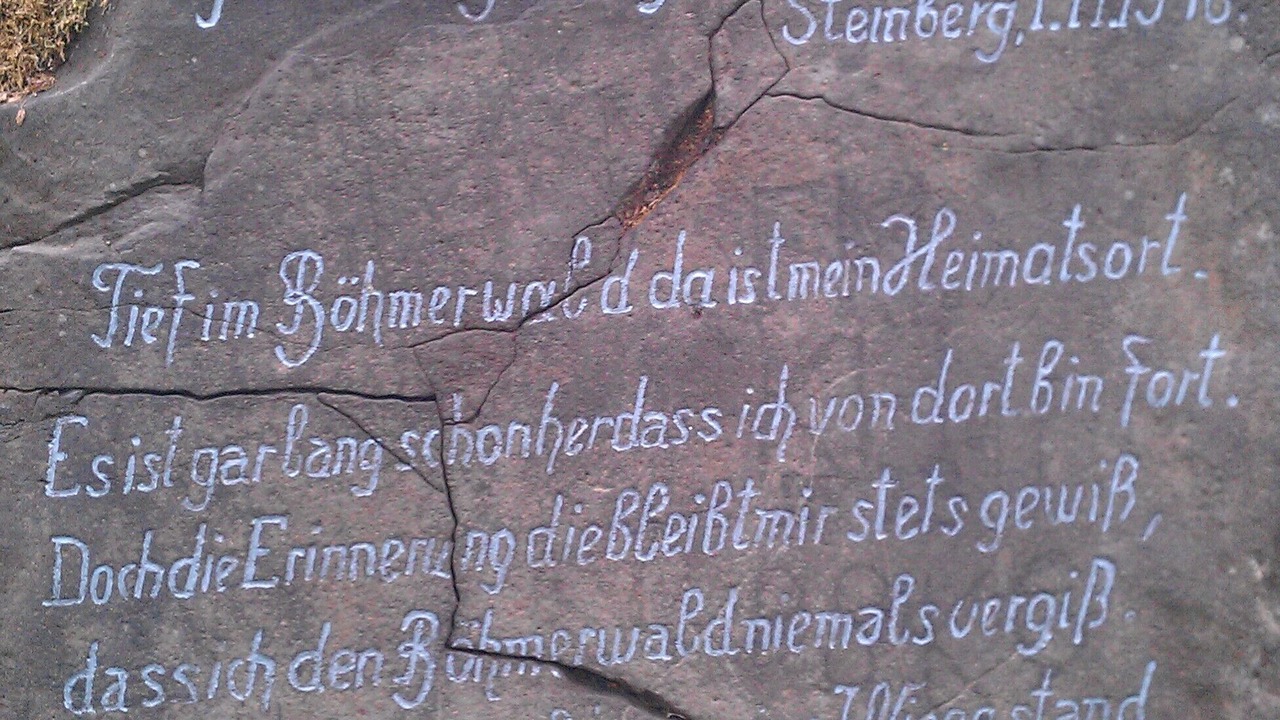 Steinberg, 1.11.1976.
Tief im Böhmerwald da ist mein Heimatsort.
Es ist gar lang schon her dass ich von dort bin fort.
Doch die Erinnerung die bleibt mir stets gewiß,
dass ich den Böhmerwald niemals vergiß.
Wiege stand